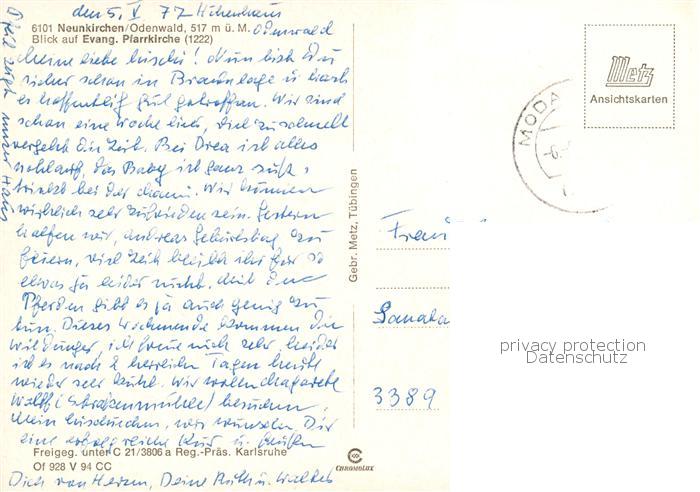 den 5. V 77
Odenwald
6101 Neunkirchen/Odenwald, 517 m ü. M.
Blick auf Evang. Pfarrkirche (1222)
Meine liebe ! Nun bist Du
sicher schon in Braunlage u. hast
es hoffentlich gut getroffen. Wir sind
schon eine Woche hier, viel zu schnell
vergeht die Zeit. Bei ist alles
wohlauf, das Baby ist ganz süß,
trinkt bei der Mami. Wir können
wirklich sehr zufrieden sein. Gestern
halfen wir, Andreas Geburtstag zu
feiern, viel Zeit bleibt ihr für so
etwas ja leider nicht. Mit den
Pferden gibt es ja auch genug zu
tun. Dieses Wochenende kommen die
Wildunger, ich freue mich sehr, leider
ist es nach 2 herrlichen Tagen heute
wieder sehr kühl. Wir wollen
Wolff ( ) besuchen.
Mein , wir wünschen Dir
eine erfolgreiche Kur u. grüßen
Freigeg. unter C 21/3806 a Reg.-Präs. Karlsruhe
Of 928 V 94 CC
Dich von Herzen, Deine Ruth u. Walter
Gebr. Metz, Tübingen
CHROMOLUX
Metz
Ansichtskarten
MODA
Frau
Sanato
3389
privacy protection
Datenschutz